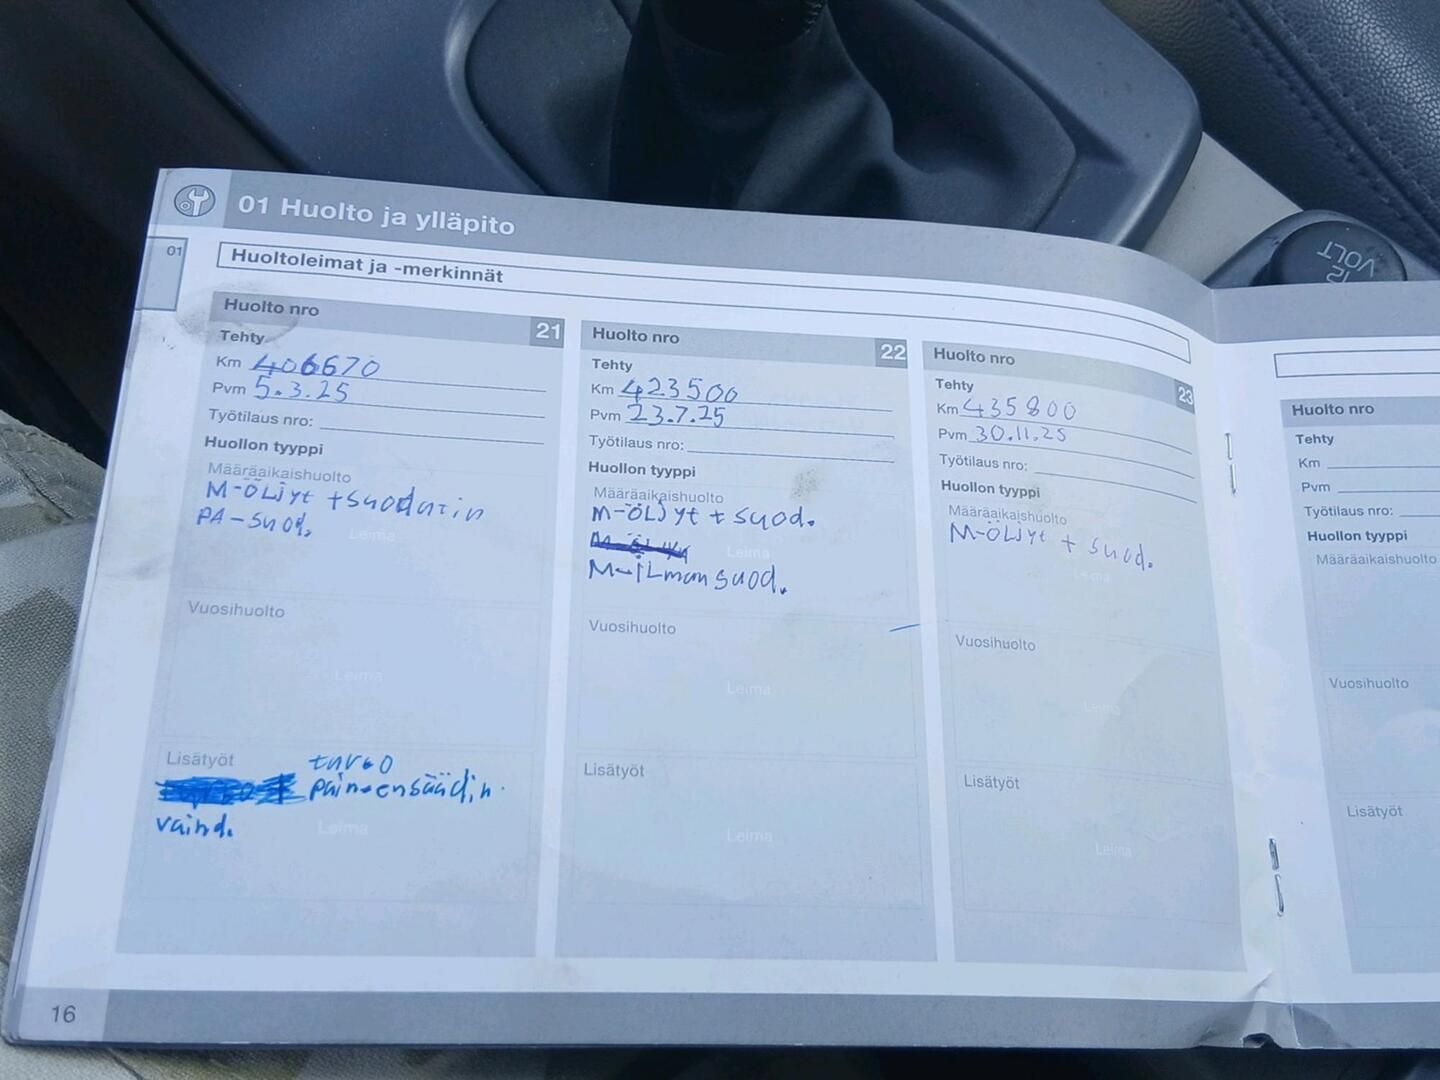 01 Huolto ja ylläpito
01
Huoltoleimat ja -merkinnät
Huolto nro 21
Tehty
Km 406670
Pvm 5.3.25
Työtilaus nro:
Huollon tyyppi
Määräaikaishuolto
M-ÖLJyt + suodatin
PA-suod.
Leima
Vuosihuolto
Leima
Lisätyöt
turbo
paineensäädin
vaihd.
Leima
Huolto nro 22
Tehty
Km 423500
Pvm 23.7.25
Työtilaus nro:
Huollon tyyppi
Määräaikaishuolto
M-ÖLJyt + suod.
Leima
M-iLman suod.
Vuosihuolto
Leima
Lisätyöt
Leima
Huolto nro 23
Tehty
Km 435800
Pvm 30.11.25
Työtilaus nro:
Huollon tyyppi
Määräaikaishuolto
M-ÖLJyt + suod.
Leima
Vuosihuolto
Leima
Lisätyöt
Leima
Huolto nro
Tehty
Km
Pvm
Työtilaus nro:
Huollon tyyppi
Määräaikaishuolto
Vuosihuolto
Lisätyöt
16
12
VOLT